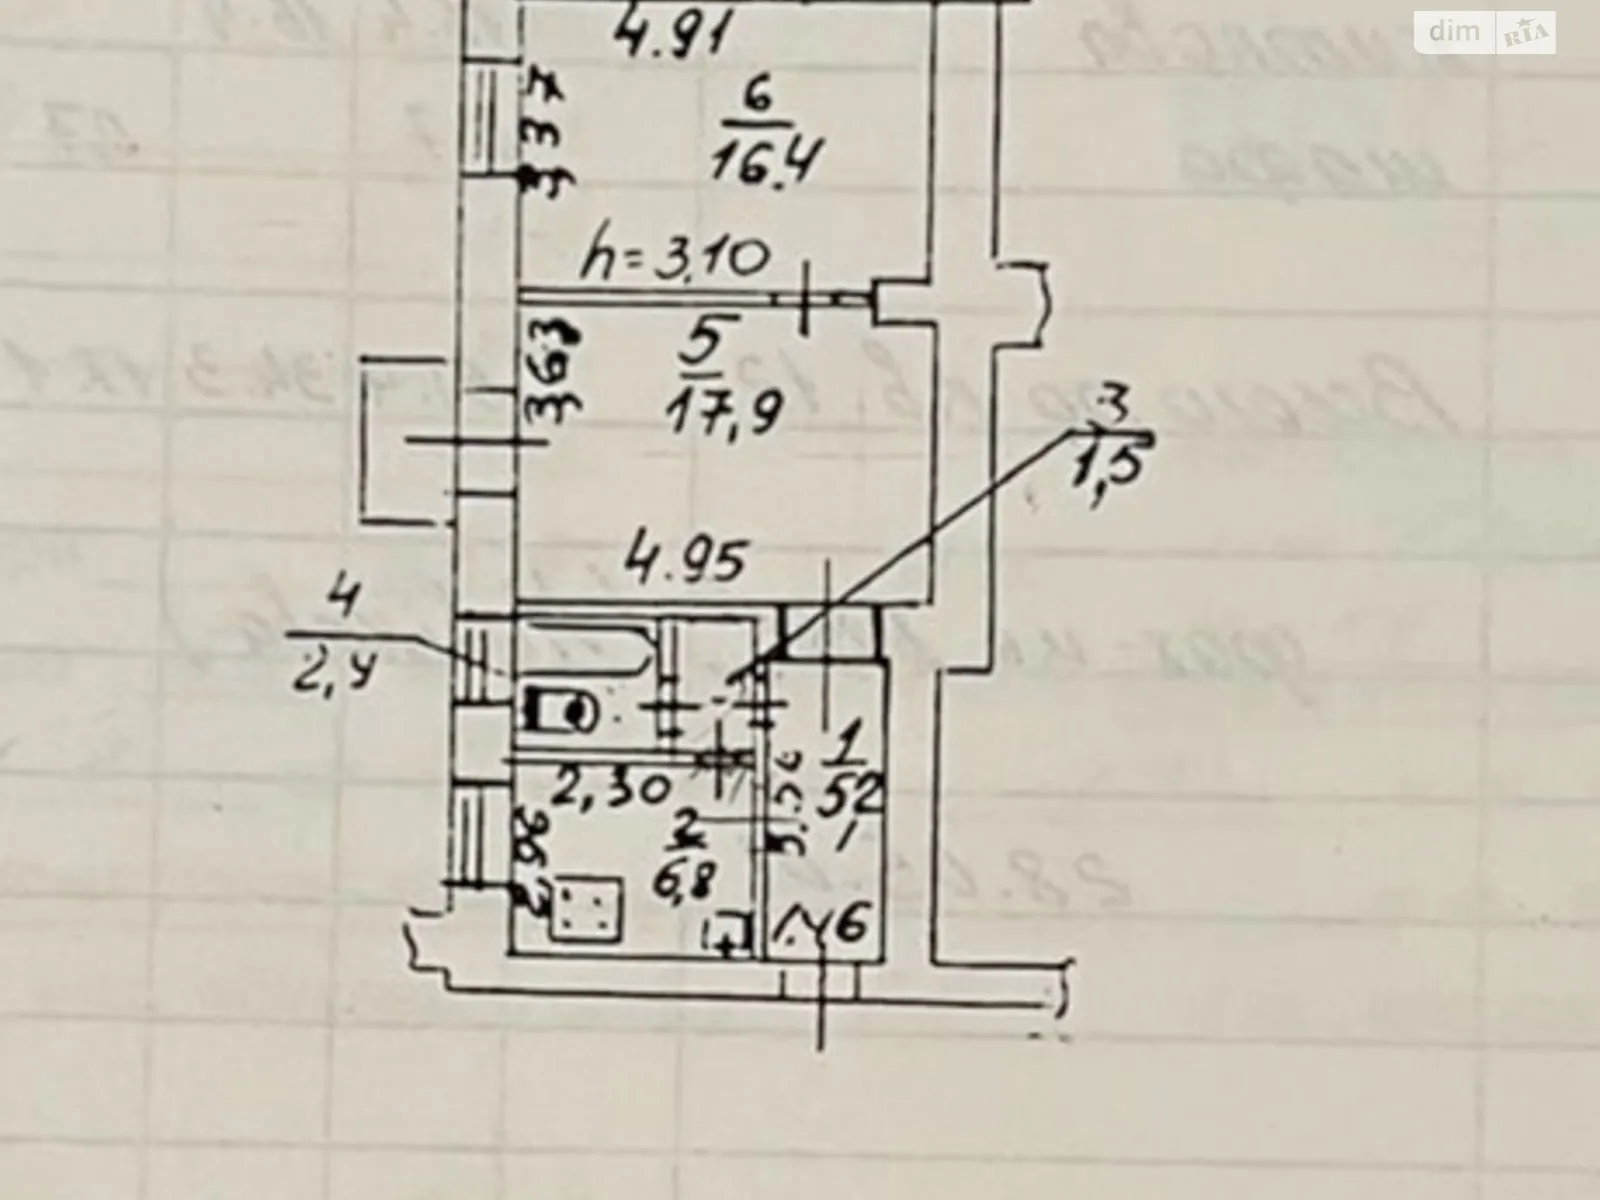 dim RIA
4.91
3.37
6
16.4
h=3.10
3.63
5
17,9
3
1,5
4.95
4
2,4
1
5,2
2,30
2
6,8
2,96
1.46